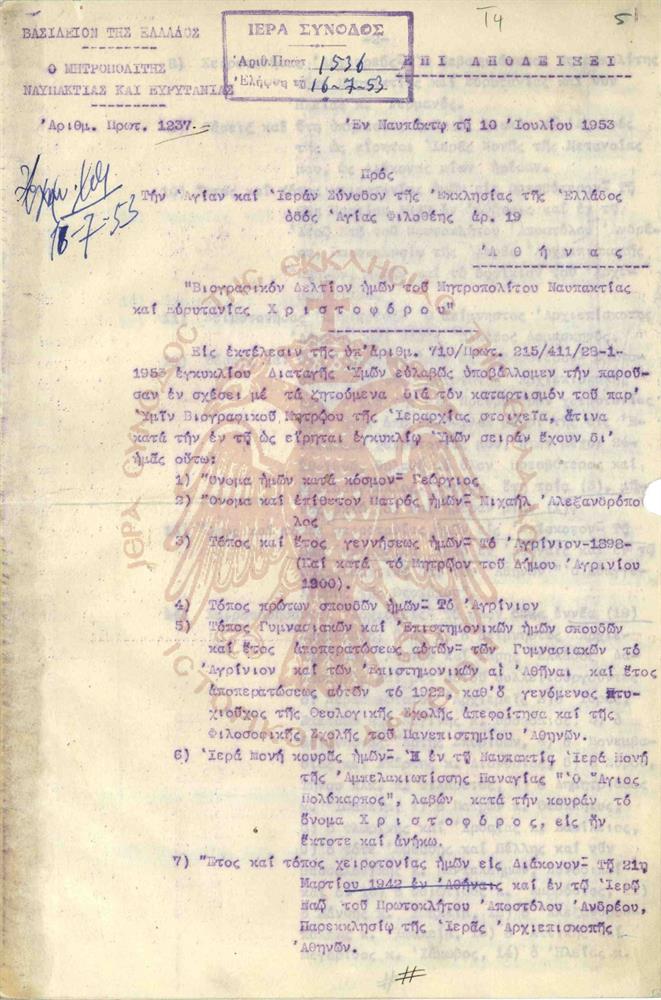 ΒΑΣΙΛΕΙΟΝ ΤΗΣ ΕΛΛΑΔΟΣ
Ο ΜΗΤΡΟΠΟΛΙΤΗΣ
ΝΑΥΠΑΚΤΙΑΣ ΚΑΙ ΕΥΡΥΤΑΝΙΑΣ
Ἀριθ. Πρωτ. 1237.
ΙΕΡΑ ΣΥΝΟΔΟΣ
Ἀριθ. Πρωτ. 1536
Ἐλήφθη τῇ 16-7-53
Τ4
51
ΕΠΙ ΑΠΟΔΕΙΞΕΙ
Ἐν Ναυπάκτῳ τῇ 10 Ἰουλίου 1953
16-7-53
Πρός
Τήν Ἁγίαν καί Ἱεράν Σύνοδον τῆς Ἐκκλησίας τῆς Ἑλλάδος
ὁδός Ἁγίας Φιλοθέης ἀρ. 19
Ἀθήνας
"Βιογραφικόν Δελτίον ἡμῶν τοῦ Μητροπολίτου Ναυπακτίας
καί Εὐρυτανίας Χριστοφόρου"
Εἰς ἐκτέλεσιν τῆς ὑπ' ἀριθμ. 710/Πρωτ. 215/411/28-1-
1953 ἐγκυκλίου Διαταγῆς Ὑμῶν εὐλαβῶς ὑποβάλλομεν τήν παροῦ-
σαν ἐν σχέσει μέ τά ζητούμενα διά τόν καταρτισμόν τοῦ παρ'
Ὑμῖν Βιογραφικοῦ Μητρῴου τῆς Ἱεραρχίας στοιχεῖα, ἅτινα
κατά τήν ἐν τῇ ὡς εἴρηται ἐγκυκλίῳ Ὑμῶν σειράν ἔχουν δι'
ἡμᾶς οὕτω:
1) Ὄνομα ἡμῶν κατά κόσμον- Γεώργιος
2) Ὄνομα καί ἐπίθετον Πατρός ἡμῶν- Μιχαήλ Ἀλεξανδρόπου
λος
3) Τόπος καί ἔτος γεννήσεως ἡμῶν- Τό Ἀγρίνιον-1898-
(Καί κατά τό Μητρῷον τοῦ Δήμου Ἀγρινίου
1900).
4) Τόπος πρώτων σπουδῶν ἡμῶν- Τό Ἀγρίνιον
5) Τόπος Γυμνασιακῶν καί Ἐπιστημονικῶν ἡμῶν σπουδῶν
καί ἔτος ἀποπερατώσεως αὐτῶν- τῶν Γυμνασιακῶν τό
Ἀγρίνιον καί τῶν Ἐπιστημονικῶν αἱ Ἀθῆναι καί ἔτος
ἀποπερατώσεως αὐτῶν τό 1922, καθ' ὅ γενόμενος πτυ-
χιοῦχος τῆς Θεολογικῆς Σχολῆς ἀπεφοίτησα καί τῆς
Φιλοσοφικῆς Σχολῆς τοῦ Πανεπιστημίου Ἀθηνῶν.
6) Ἱερά Μονή κουρᾶς ἡμῶν- Ἡ ἐν τῇ Ναυπακτίᾳ Ἱερά Μονή
τῆς Ἀμπελακιωτίσσης Παναγίας "Ὁ Ἅγιος
Πολύκαρπος", λαβών κατά τήν κουράν τό
ὄνομα Χριστοφόρος, εἰς ἥν
ἔκτοτε καί ἀνήκω.
7) Ἔτος καί τόπος χειροτονίας ἡμῶν εἰς Διάκονον- Τῇ 21ῃ
Μαρτίου 1942 ἐν Ἀθήναις καί ἐν τῷ Ἱερῷ
Ναῷ τοῦ Πρωτοκλήτου Ἀποστόλου Ἀνδρέου,
Παρεκκλησίῳ τῆς Ἱερᾶς Ἀρχιεπισκοπῆς
Ἀθηνῶν.
#